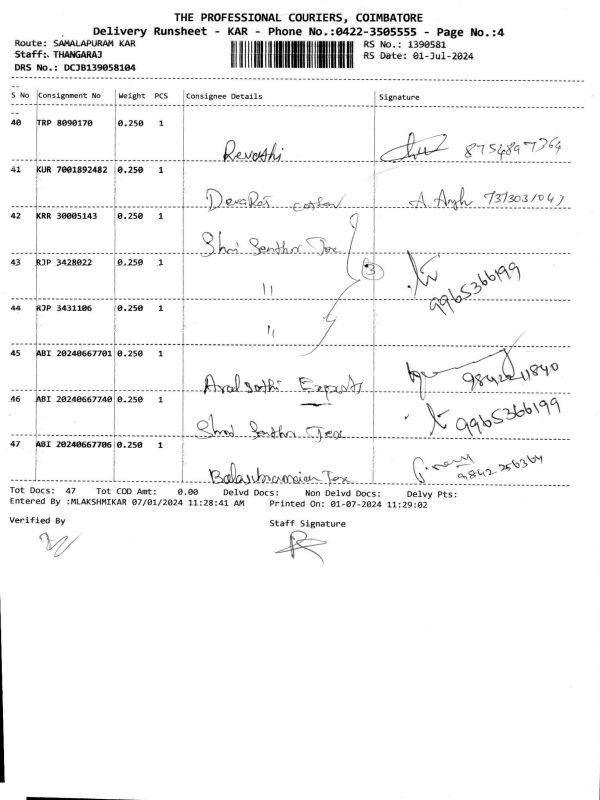 THE PROFESSIONAL COURIERS, COIMBATORE
Delivery Runsheet - KAR - Phone No.:0422-3505555 - Page No.:4
Route: SAMALAPURAM KAR RS No.: 1390581
Staff: THANGARAJ RS Date: 01-Jul-2024
DRS No.: DCJB139058104
S No Consignment No Weight PCS Consignee Details Signature
40 TRP 8090170 0.250 1
Revathi 8754897364
41 KUR 7001892482 0.250 1
Devaraj cotton 7373031047
42 KRR 30005143 0.250 1
Shri Senthur Tex
43 RJP 3428022 0.250 1
" 3 9965366199
44 RJP 3431106 0.250 1
"
45 ABI 20240667701 0.250 1
Arulsothi Exports 9842211840
46 ABI 20240667740 0.250 1
Shri Senthur Tex 9965366199
47 ABI 20240667706 0.250 1
Balasubramaniam Tex 9842256364
Tot Docs: 47 Tot COD Amt: 0.00 Delvd Docs: Non Delvd Docs: Delvy Pts:
Entered By :MLAKSHMIKAR 07/01/2024 11:28:41 AM Printed On: 01-07-2024 11:29:02
Verified By Staff Signature